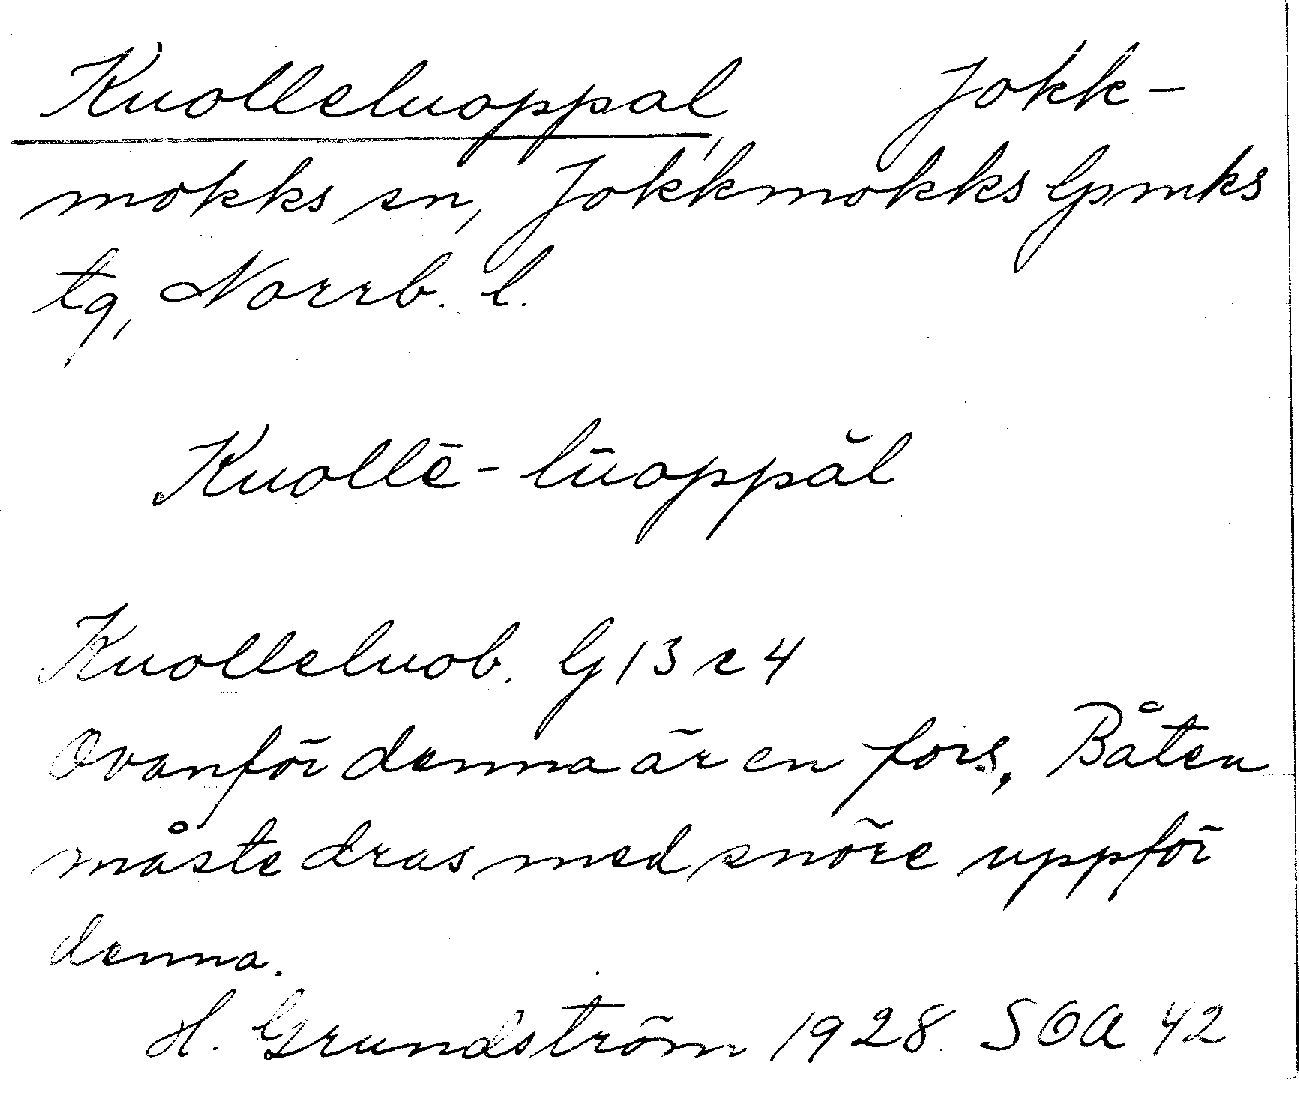 Kuolleluoppal, Jokk-
mokks sn, Jokkmokks lpmks
tg, Norrb. l.
Kuollē-lūoppăl
Kuolleluob. G 13 c 4
Ovanför denna är en fors, Båten
måste dras med snöre uppför
denna.
H. Grundström 1928. SOA 42